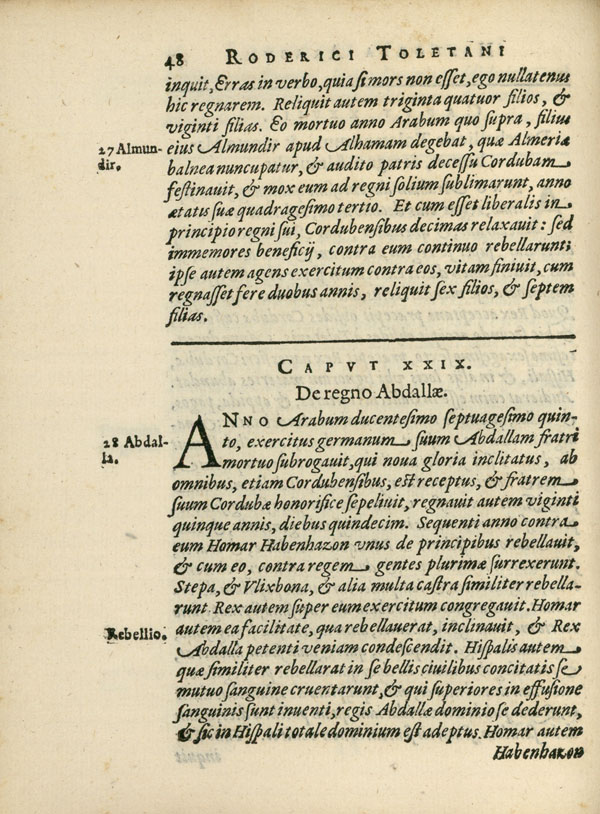 48 RODERICI TOLETANI
inquit, Erras in verbo, quia si mors non esset, ego nullatenus
hic regnarem. Reliquit autem triginta quatuor filios, &
viginti filias. Eo mortuo anno Arabum quo supra, filius
27 Almun-
dir.
eius Almundir apud Alhamam degebat, quæ Almeriæ
balnea nuncupatur, & audito patris decessu Cordubam
festinauit, & mox eum ad regni solium sublimarunt, anno
ætatis suæ quadragesimo tertio. Et cum esset liberalis in
principio regni sui, Cordubensibus decimas relaxauit: sed
immemores beneficij, contra eum continuo rebellarunt;
ipse autem agens exercitum contra eos, vitam finiuit, cum
regnasset fere duobus annis, reliquit sex filios, & septem
filias.
CAPVT XXIX.
De regno Abdallæ.
ANNO Arabum ducentesimo septuagesimo quin-
28 Abdal-
la.
to, exercitus germanum suum Abdallam fratri
mortuo subrogauit, qui noua gloria inclitatus, ab
omnibus, etiam Cordubensibus, est receptus, & fratrem
suum Cordubæ honorifice sepeliuit, regnauit autem viginti
quinque annis, diebus quindecim. Sequenti anno contra
eum Homar Habenhazon vnus de principibus rebellauit,
& cum eo, contra regem gentes plurimæ surrexerunt.
Stepa, & Vlixbona, & alia multa castra similiter rebella-
runt. Rex autem super eum exercitum congregauit. Homar
Rebellio.
autem ea facilitate, qua rebellauerat, inclinauit, & Rex
Abdalla petenti veniam condescendit. Hispalis autem
quæ similiter rebellarat in se bellis ciuilibus concitatis se
mutuo sanguine cruentarunt, & qui superiores in effusione
sanguinis sunt inuenti, regis Abdallæ dominio se dederunt,
& sic in Hispali totale dominium est adeptus. Homar autem
Habenhazon